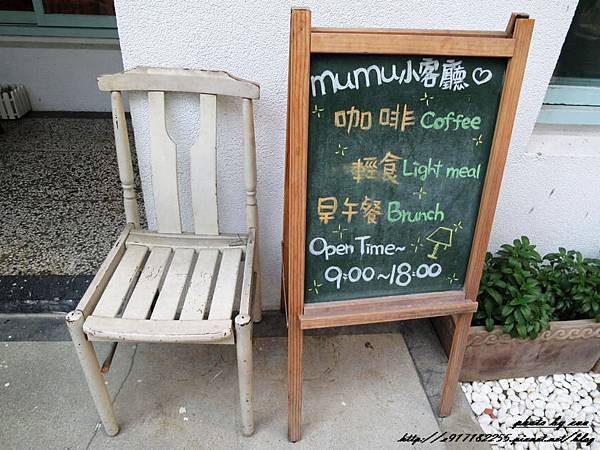 mumu小客廳♡
咖啡 Coffee
輕食 Light meal
早午餐 Brunch
Open Time~
9:00~18:00
photo by eva